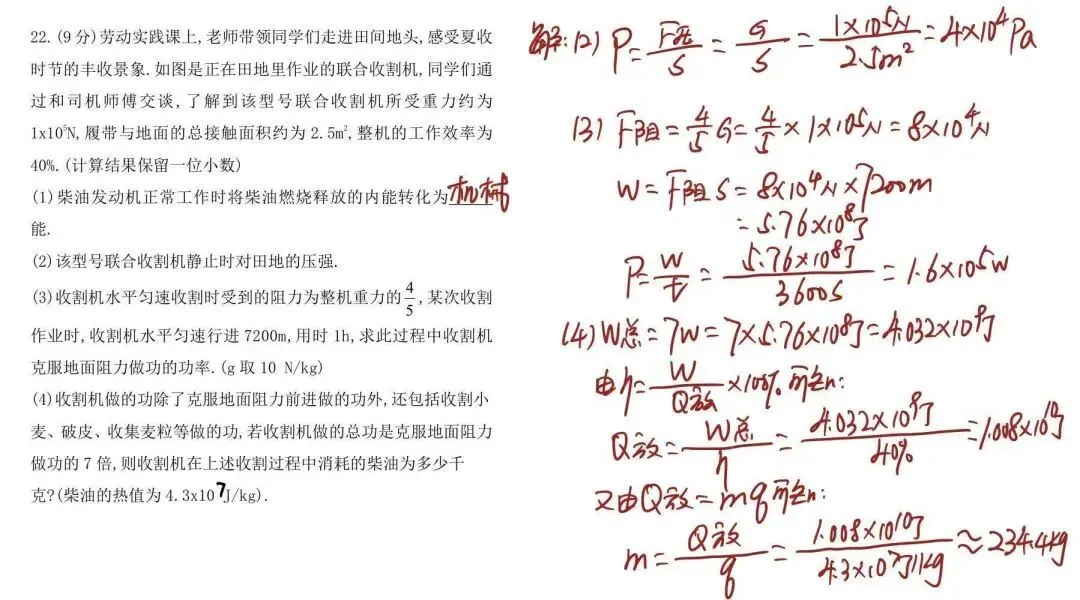 22.(9分)劳动实践课上,老师带领同学们走进田间地头,感受夏收
时节的丰收景象.如图是正在田地里作业的联合收割机,同学们通
过和司机师傅交谈,了解到该型号联合收割机所受重力约为
1x10⁵N,履带与地面的总接触面积约为 2.5m²,整机的工作效率为
40%.(计算结果保留一位小数)
(1)柴油发动机正常工作时将柴油燃烧释放的内能转化为机械
能.
(2)该型号联合收割机静止时对田地的压强.
(3)收割机水平匀速收割时受到的阻力为整机重力的4/5,某次收割
作业时,收割机水平匀速行进 7200m,用时 1h,求此过程中收割机
克服地面阻力做功的功率.(g 取 10 N/kg)
(4)收割机做的功除了克服地面阻力前进做的功外,还包括收割小
麦、破皮、收集麦粒等做的功,若收割机做的总功是克服地面阻力
做功的 7 倍,则收割机在上述收割过程中消耗的柴油为多少千
克?(柴油的热值为 4.3x10⁷J/kg).
解:(2) P=F压/S=G/S=1×10⁵N/2.5m²=4×10⁴Pa
(3) F阻=4/5G=4/5×1×10⁵N=8×10⁴N
W=F阻S=8×10⁴N×7200m
=5.76×10⁸J
P=W/t=5.76×10⁸J/3600s=1.6×10⁵W
(4)W总=7W=7×5.76×10⁸J=4.032×10⁹J
由η=W/Q放×100%可知:
Q放=W总/η=4.032×10⁹J/40%=1.008×10¹⁰J
又由Q放=mq可知:
m=Q放/q=1.008×10¹⁰J/4.3×10⁷J/kg≈234.4kg